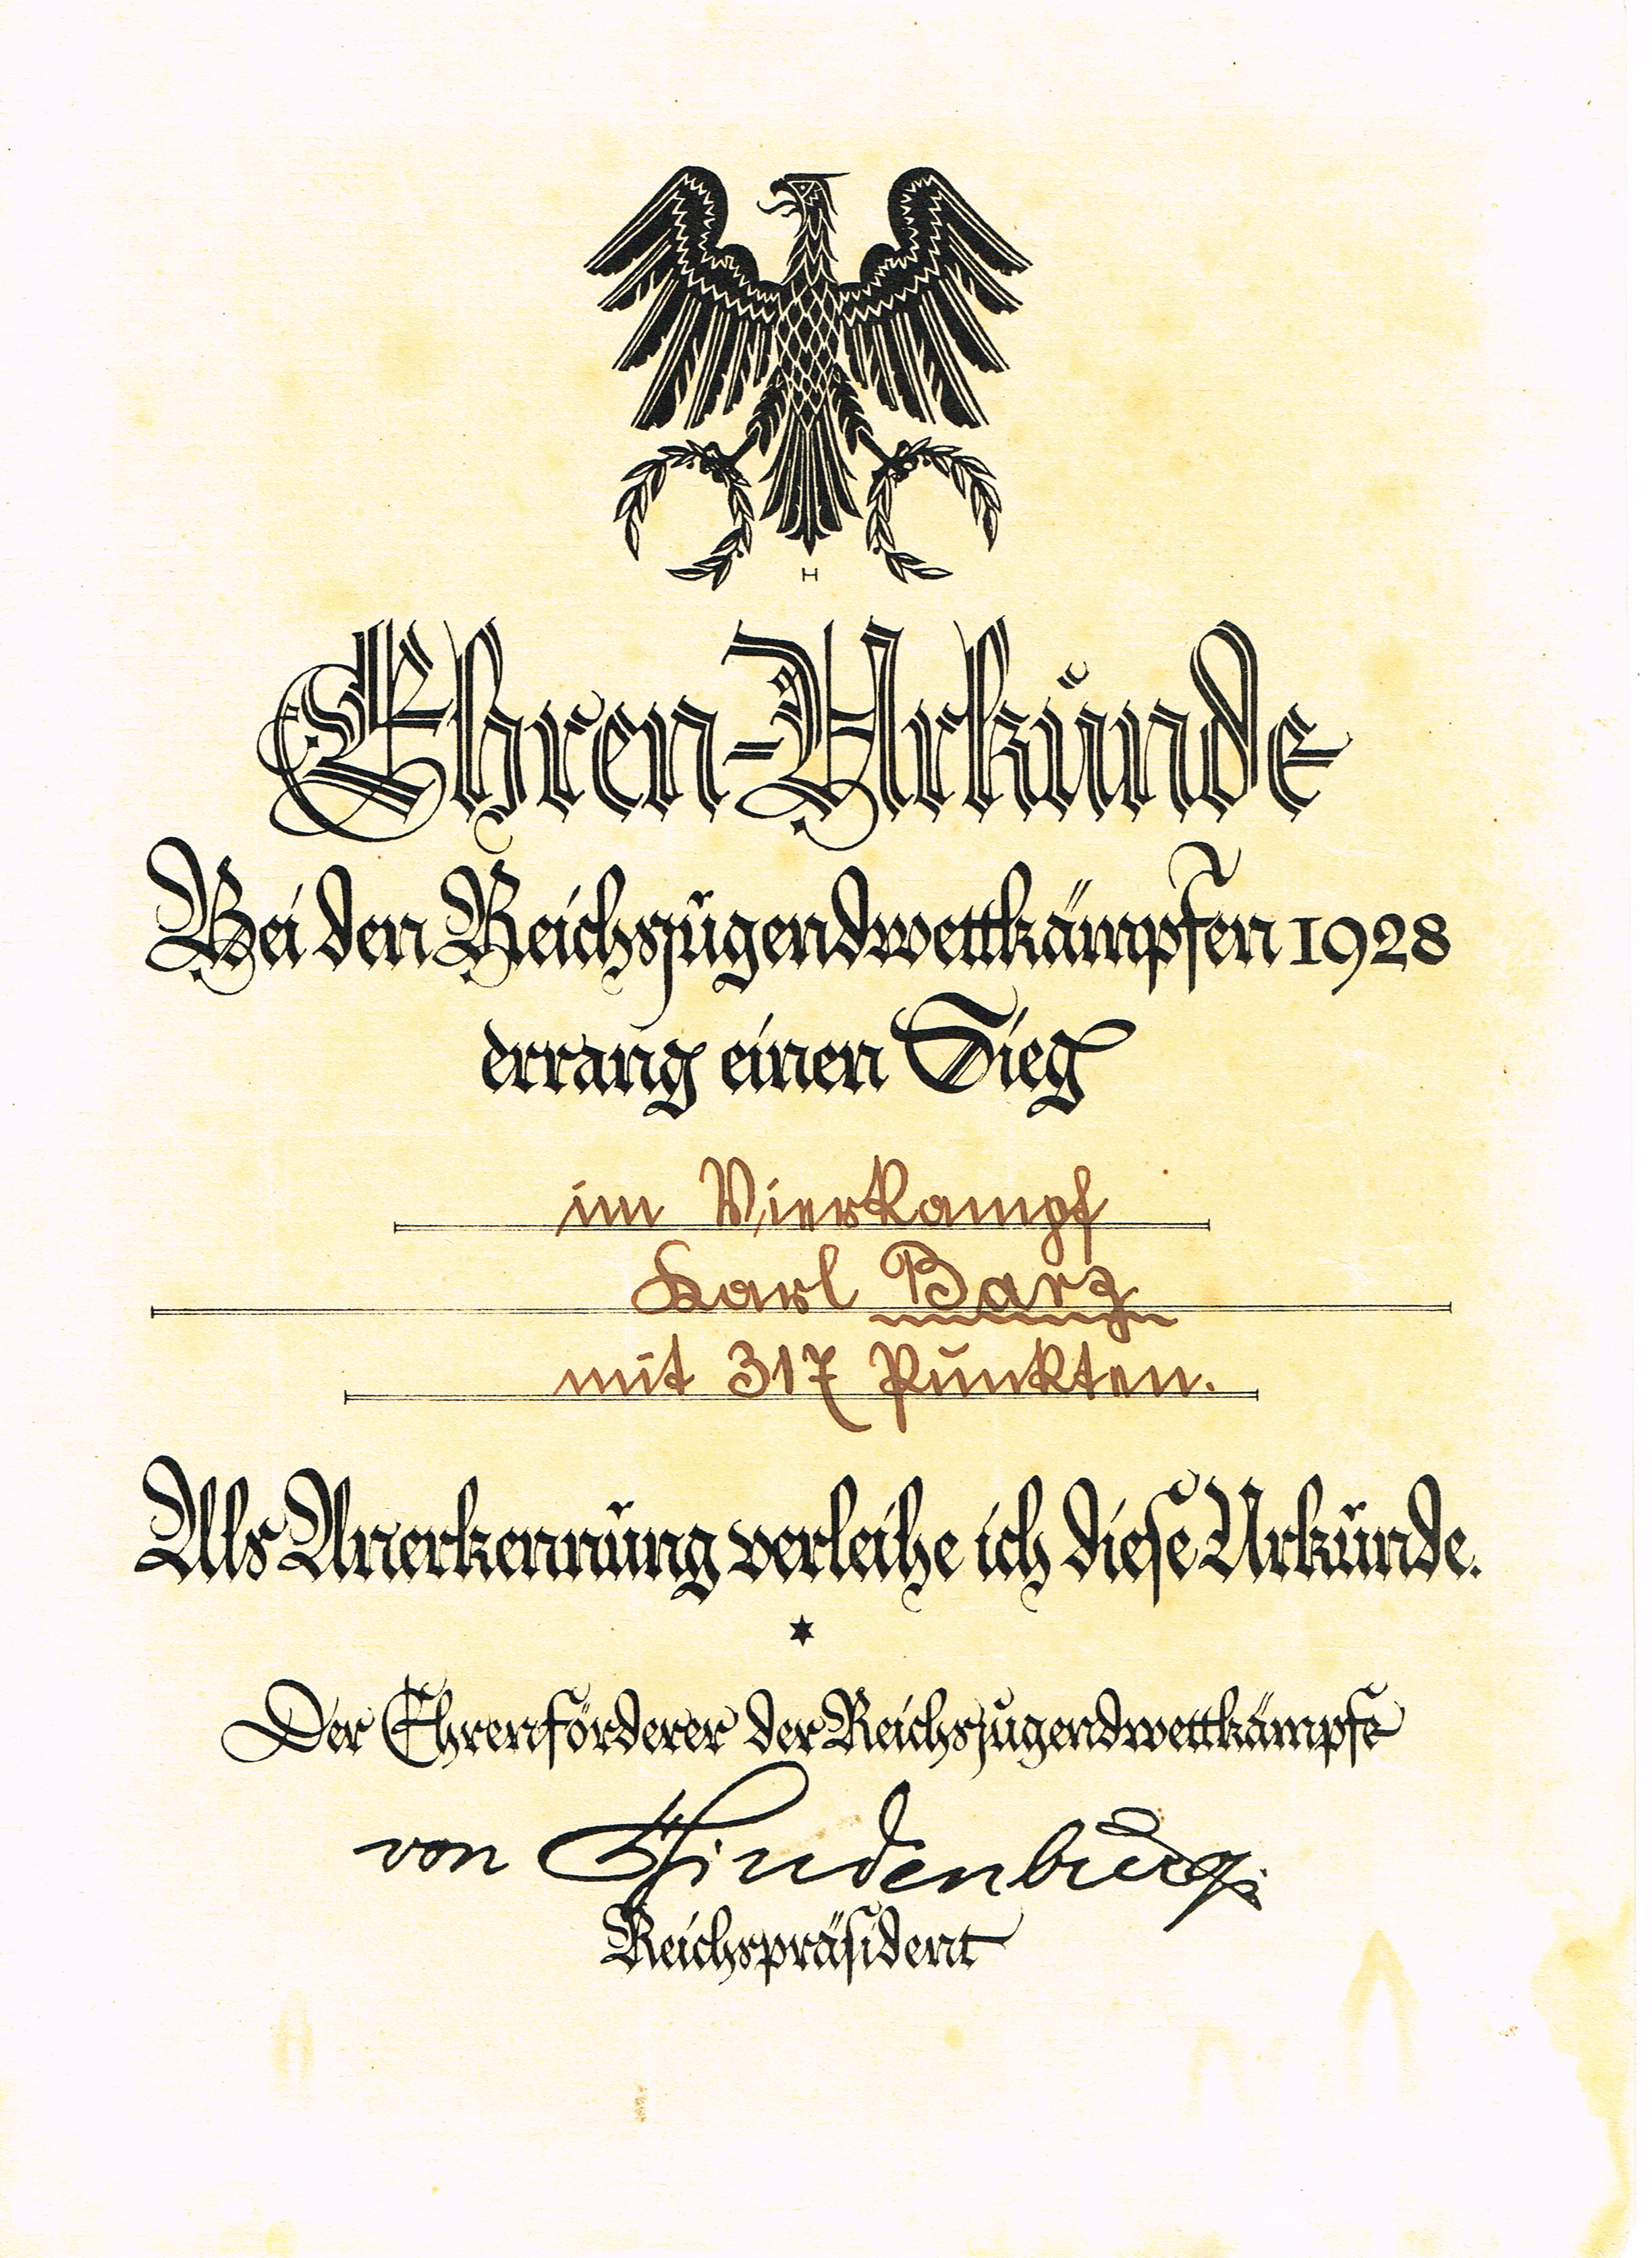 H
Ehren-Urkunde
Bei den Reichsjugendwettkämpfen 1928
errang einen Sieg
im Vierkampf
Karl Barz
mit 317 Punkten.
Als Anerkennung verleihe ich diese Urkunde.
Der Ehrenförderer der Reichsjugendwettkämpfe
von Hindenburg.
Reichspräsident